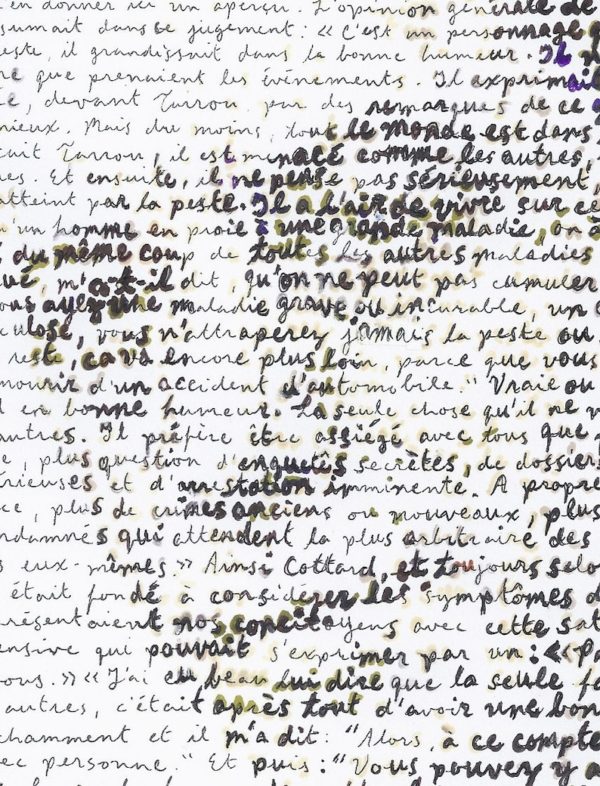 en donner ici un aperçu. L'opinion générale de
sumait dans ce jugement: « C'est un personnage q
este, il grandissait dans la bonne humeur. Il n
re que prenaient les événements. Il exprimait
ée, devant Tarrou, par des remarques de ce g
mieux. Mais du moins, tout le monde est dans
cuit Tarrou, il est menacé comme les autres,
es. Et ensuite, il ne pense pas sérieusement,
atteint par la peste. Il a l'air de vivre sur ce
u'un homme en proie à une grande maladie, on à
t du même coup de toutes les autres maladies
ué, m'a-t-il dit, qu'on ne peut pas cumuler
ous ayez une maladie grave ou incurable, un c
culose, vous n'attraperez jamais la peste ou
reste, ça va encore plus loin, parce que vous
mourir d'un accident d'automobile." Vraie ou
t en bonne humeur. La seule chose qu'il ne v
autres. Il préfère être assiégé avec tous que
e, plus question d'enquêtes secrètes, de dossiers
érieuses et d'arrestation imminente. A propre
ce, plus de crimes anciens ou nouveaux, plus
ndamnés qui attendent la plus arbitraire des
s eux-mêmes. » Ainsi Cottard, et toujours selo
était fondé à considérer les symptômes d
résentaient nos concitoyens avec cette sat
ensive qui pouvait s'exprimer par un : « Pa
vous. » « J'ai eu beau lui dire que la seule fa
autres, c'était après tout d'avoir une bon
chamment et il m'a dit: "Alors, à ce compte
vec personne." Et puis: "Vous pouvez y a